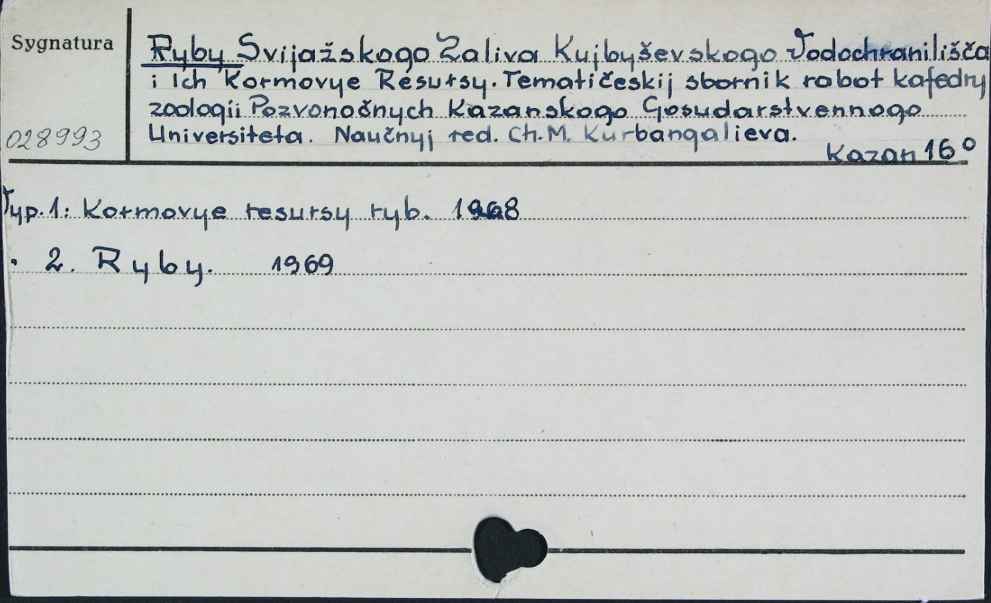 Sygnatura
Ryby Svijažskogo Zaliva Kujbyševskogo Vodochranilišča
i Ich Kormovye Resursy. Tematičeskij sbornik rabot kafedry
zoologii Pozvonočnych Kazanskogo Gosudarstvennogo
028993
Universiteta. Naučnyj red. Ch. M. Kurbangalieva.
Kazan 16°
Vyp. 1: Kormovye resursy ryb. 1968
" 2. Ryby. 1969